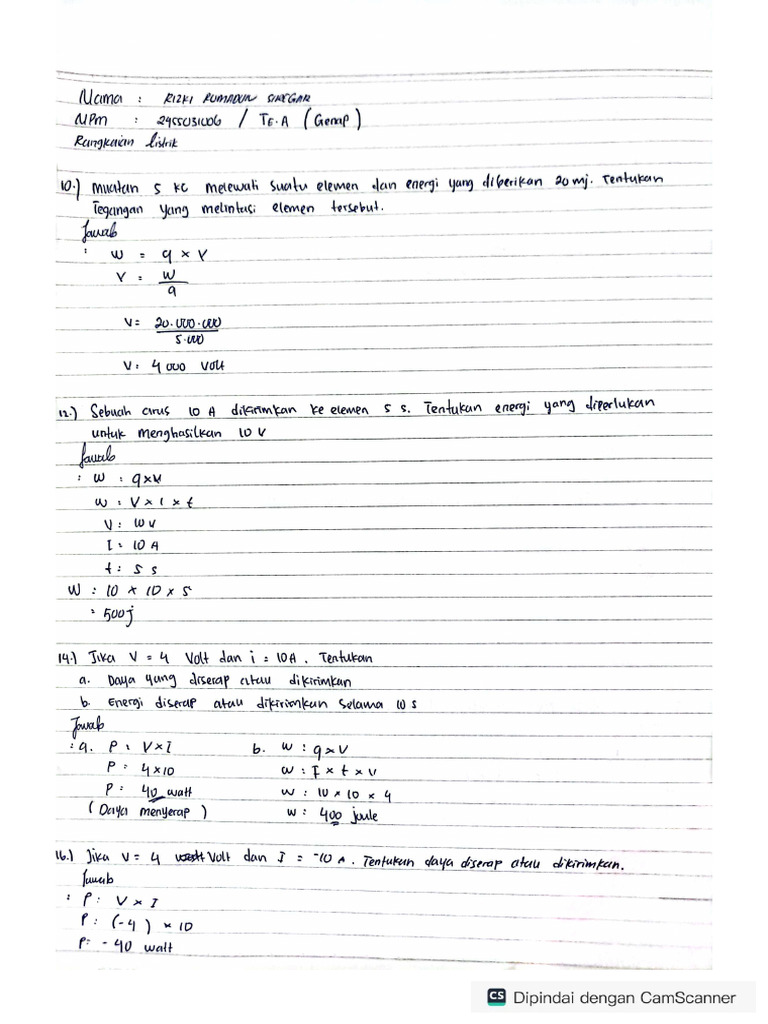 Nama : RIZKI RUMADUN SIREGAR
NPM : 2455031006 / TE.A (Genap)
Rangkaian listrik
10.) Muatan 5 kC melewati suatu elemen dan energi yang diberikan 20 mj. Tentukan
Tegangan yang melintasi elemen tersebut.
Jawab
: W = q × V
V = W
q
V = 20.000.000
5.000
V : 4000 Volt
12.) Sebuah arus 10 A dikirimkan ke elemen 5 s. Tentukan energi yang diperlukan
untuk menghasilkan 10 V
Jawab
: W : q×V
W : V × I × t
V : 10 V
I : 10 A
t : 5 s
W : 10 × 10 × 5
: 500 j
14.) Jika V = 4 Volt dan i = 10A. Tentukan
a. Daya yang diserap atau dikirimkan
b. Energi diserap atau dikirimkan selama 10 s
Jawab
: a. P : V×I b. W : q×V
P : 4×10 W : I × t × V
P : 40 watt W : 10 × 10 × 4
(Daya menyerap) W : 400 joule
16.) Jika V = 4 Volt dan I = -10 A. Tentukan daya diserap atau dikirimkan.
Jawab
: P : V × I
P : (-4) × 10
P = -40 watt
CS Dipindai dengan CamScanner